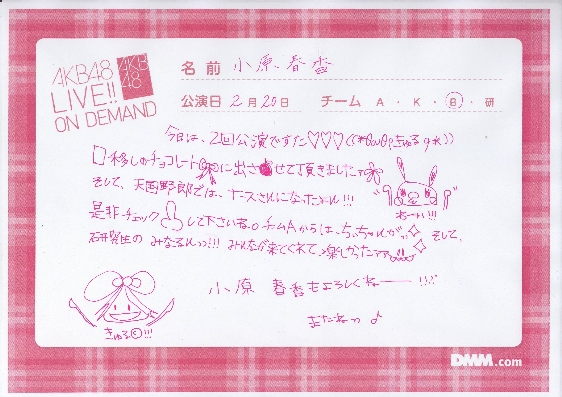 AKB48
LIVE!!
ON DEMAND
AKB
48
名前 小原春香
公演日 2月20日 チーム A・K・B・研
今日は、2回公演ですた♡♡♡
口移しのチョコレートに出させて頂きました
そして、天国野郎では、ナースさんになったよん!!!
是非チェックして下さいね。チームAからは、
そして、
研究生の みなるんっ!!! みんなが来てくれて、楽しかった
小原 春香もよろしくねー!!!
またねっ♪
きゅる©!!!
DMM.com